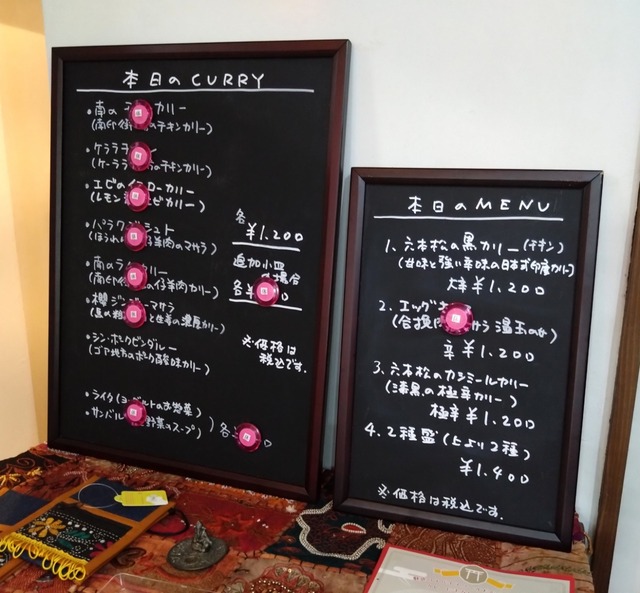 本日のCURRY
・南の カリー
(南印街 のチキンカリー)
・ケララチ
(ケーララ のチキンカリー)
・エビのイ ローカリー
(レモン ビカリー)
・パラク ュト
(ほうれ 仔羊肉のマサラ)
・南のラ リー
(南印 の仔羊肉カリー)
・櫻ジン ーマサラ
と生姜の濃厚カリー)
・シン・ポークビンダルー
(ゴア地方のポーク酸味カリー)
各
¥1,200
追加小皿
場合
各¥ 0
※価格は
税込です。
・ライタ(ヨ ルトのお惣菜)
・サンバル 野菜のスープ)
各 0
本日のMENU
1、六本松の黒カリー(チキン)
(甘味と強い辛味の日本式印度カレー)
大辛¥1,200
2、エッグキ
(合挽 から 温玉のせ)
辛¥1,200
3、六本松のカシミールカリー
(漆黒の極辛カリー)
極辛¥1,200
4、2種盛(上より2種)
¥1,400
※価格は税込です。